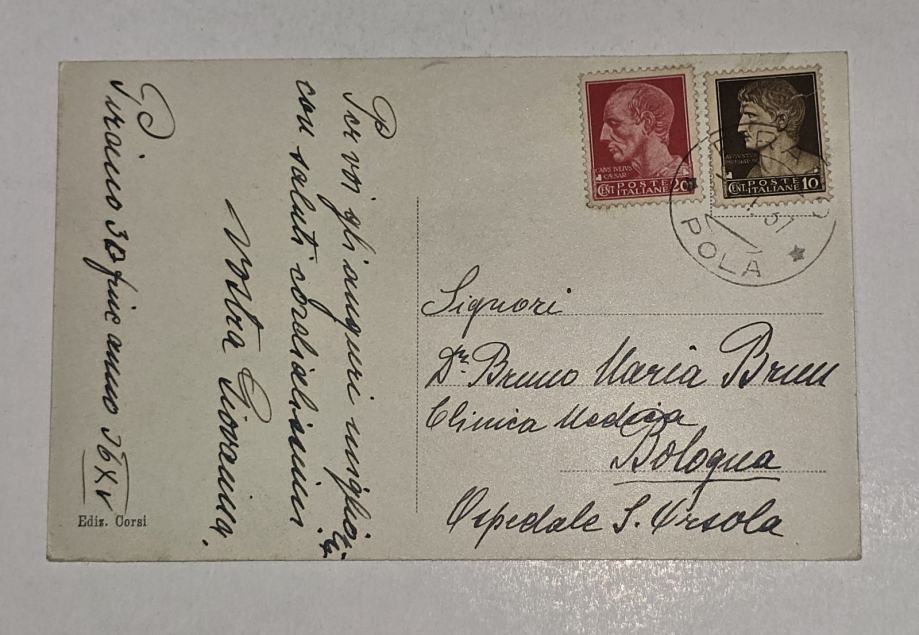 Per voi gli auguri migliori
con saluti cordialissimi
vostra Giovanna.
Pirano 30 fine anno 36 XV
Ediz. Corsi
CAIVS IVLIVS
CAESAR
CENT. POSTE 20
ITALIANE
AVGVSTVS
CENT. POSTE 10
ITALIANE
POLA
Signori
Dr. Bruno Maria Brun
Clinica Medica
Bologna
Ospedale S. Orsola